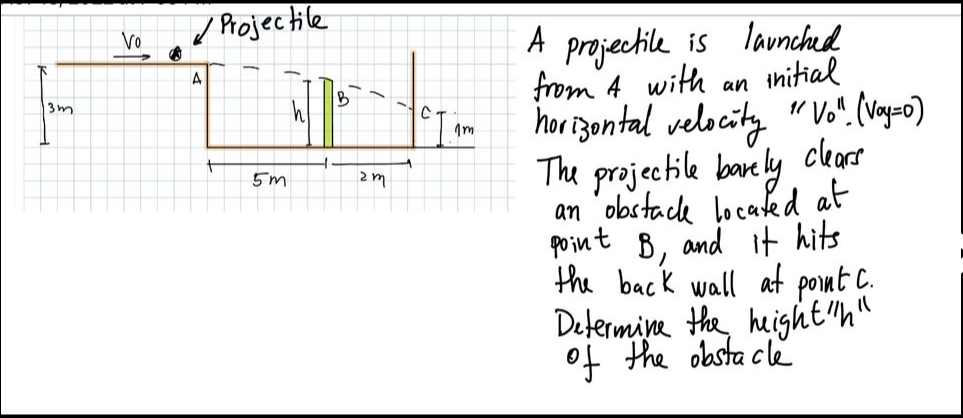 Projectile
Vo
A
3m
h
B
C
1m
5m
2m
A projectile is launched
from A with an initial
horizontal velocity "Vo". (Voy=0)
The projectile barely clears
an obstacle located at
point B, and it hits
the back wall at point C.
Determine the height "h"
of the obstacle